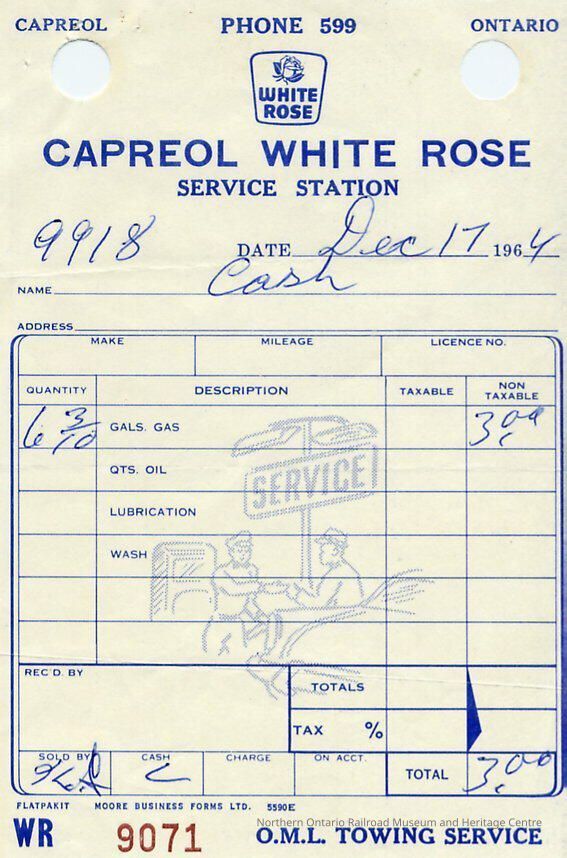 CAPREOL PHONE 599 ONTARIO
WHITE
ROSE
CAPREOL WHITE ROSE
SERVICE STATION
9918 DATE Dec 17 1964
NAME Cash
ADDRESS
MAKE MILEAGE LICENCE NO.
QUANTITY DESCRIPTION TAXABLE NON TAXABLE
6 3/10 GALS. GAS 3.00
QTS. OIL
SERVICE
LUBRICATION
WASH
REC'D. BY TOTALS
TAX %
SOLD BY CASH CHARGE ON ACCT.
TOTAL 3.00
FLATPAKIT MOORE BUSINESS FORMS LTD. 5590E
Northern Ontario Railroad Museum and Heritage Centre
WR 9071 O.M.L. TOWING SERVICE